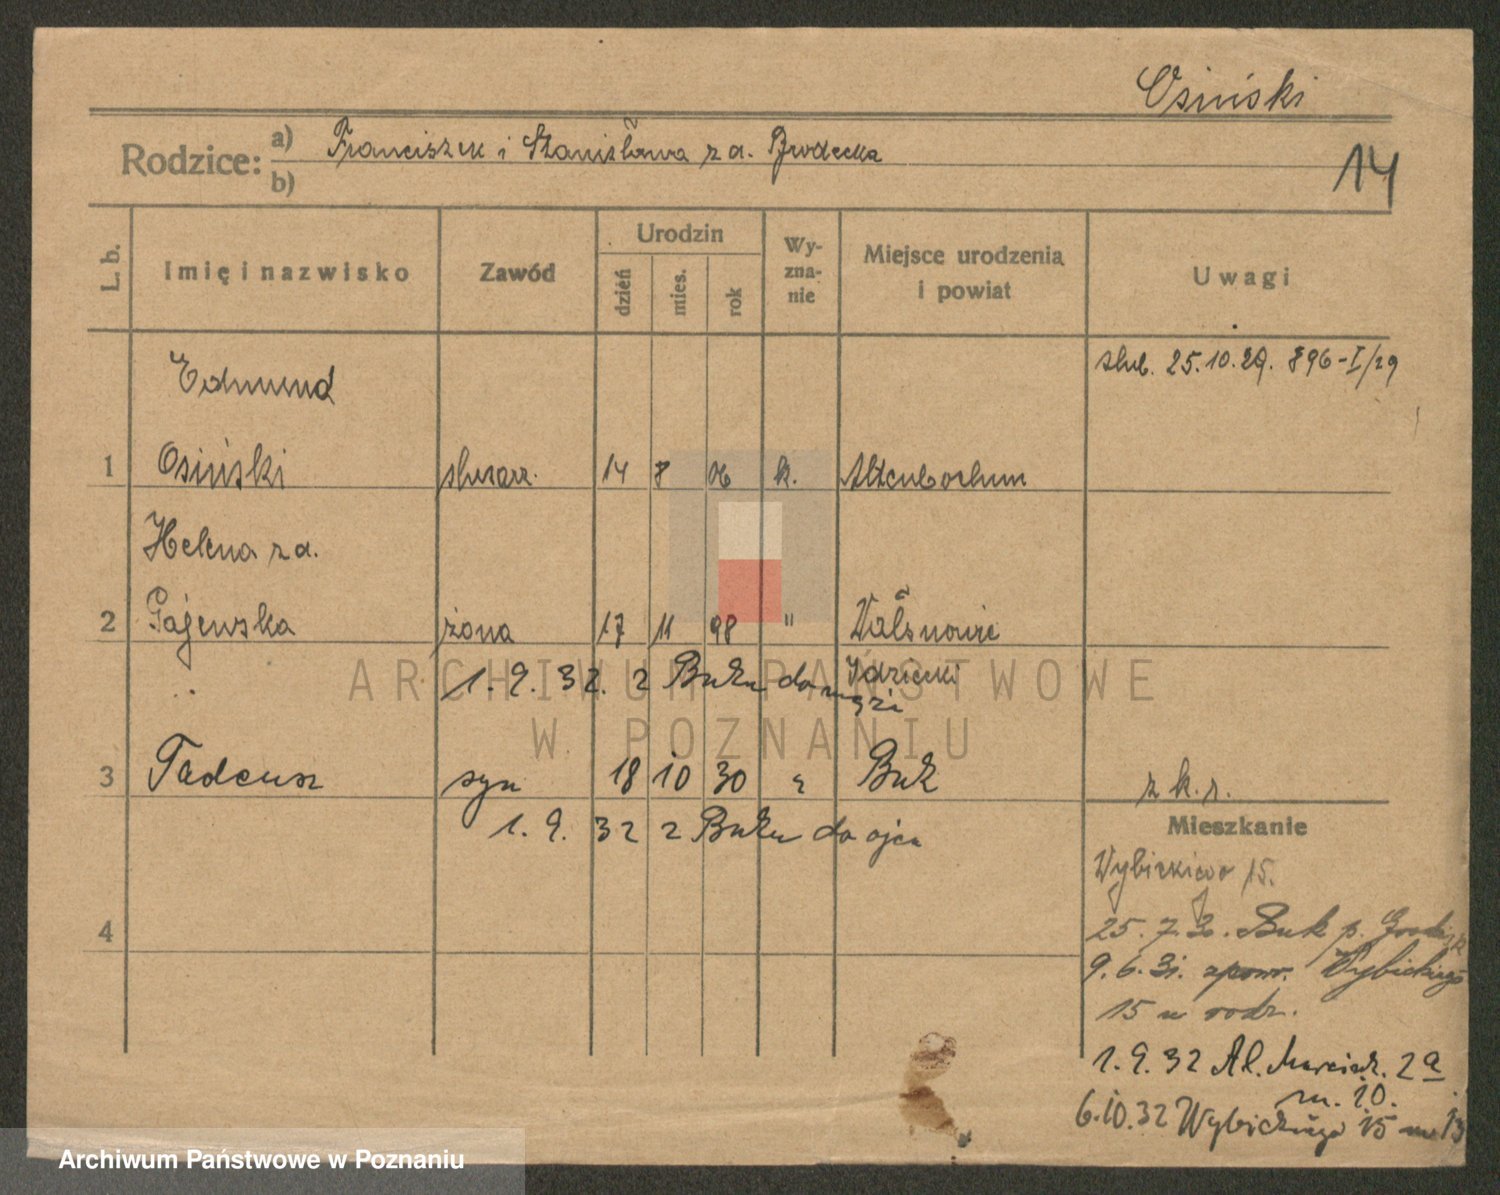 Osiński
Rodzice: a) Franciszek i Stanisława z d. Brodecka
b)
14
L. b. Imię i nazwisko Zawód Urodzin dzień mies. rok Wyznanie Miejsce urodzenia i powiat Uwagi
ślub. 25.10.29. 896-I/29
Edmund
1 Osiński ślusarz. 14 8 06 k. Altenbochum
Helena z d.
2 Gajewska żona 17 11 98 "
1.9.32. z Buku do męża
3 Tadeusz syn 18 10 30 " Buk z k. r.
1.9.32 z Buku do ojca
Mieszkanie
Wybickiego 15.
4
25.7.30. Buk p. Grodzisk
9.6.31. zpow. Wybickiego
15 u rodz.
1.9.32 Al. Marcink. 2a
m. 10.
6.10.32 Wybickiego 15 m 13
ARCHIWUM PAŃSTWOWE
W POZNANIU
Archiwum Państwowe w Poznaniu